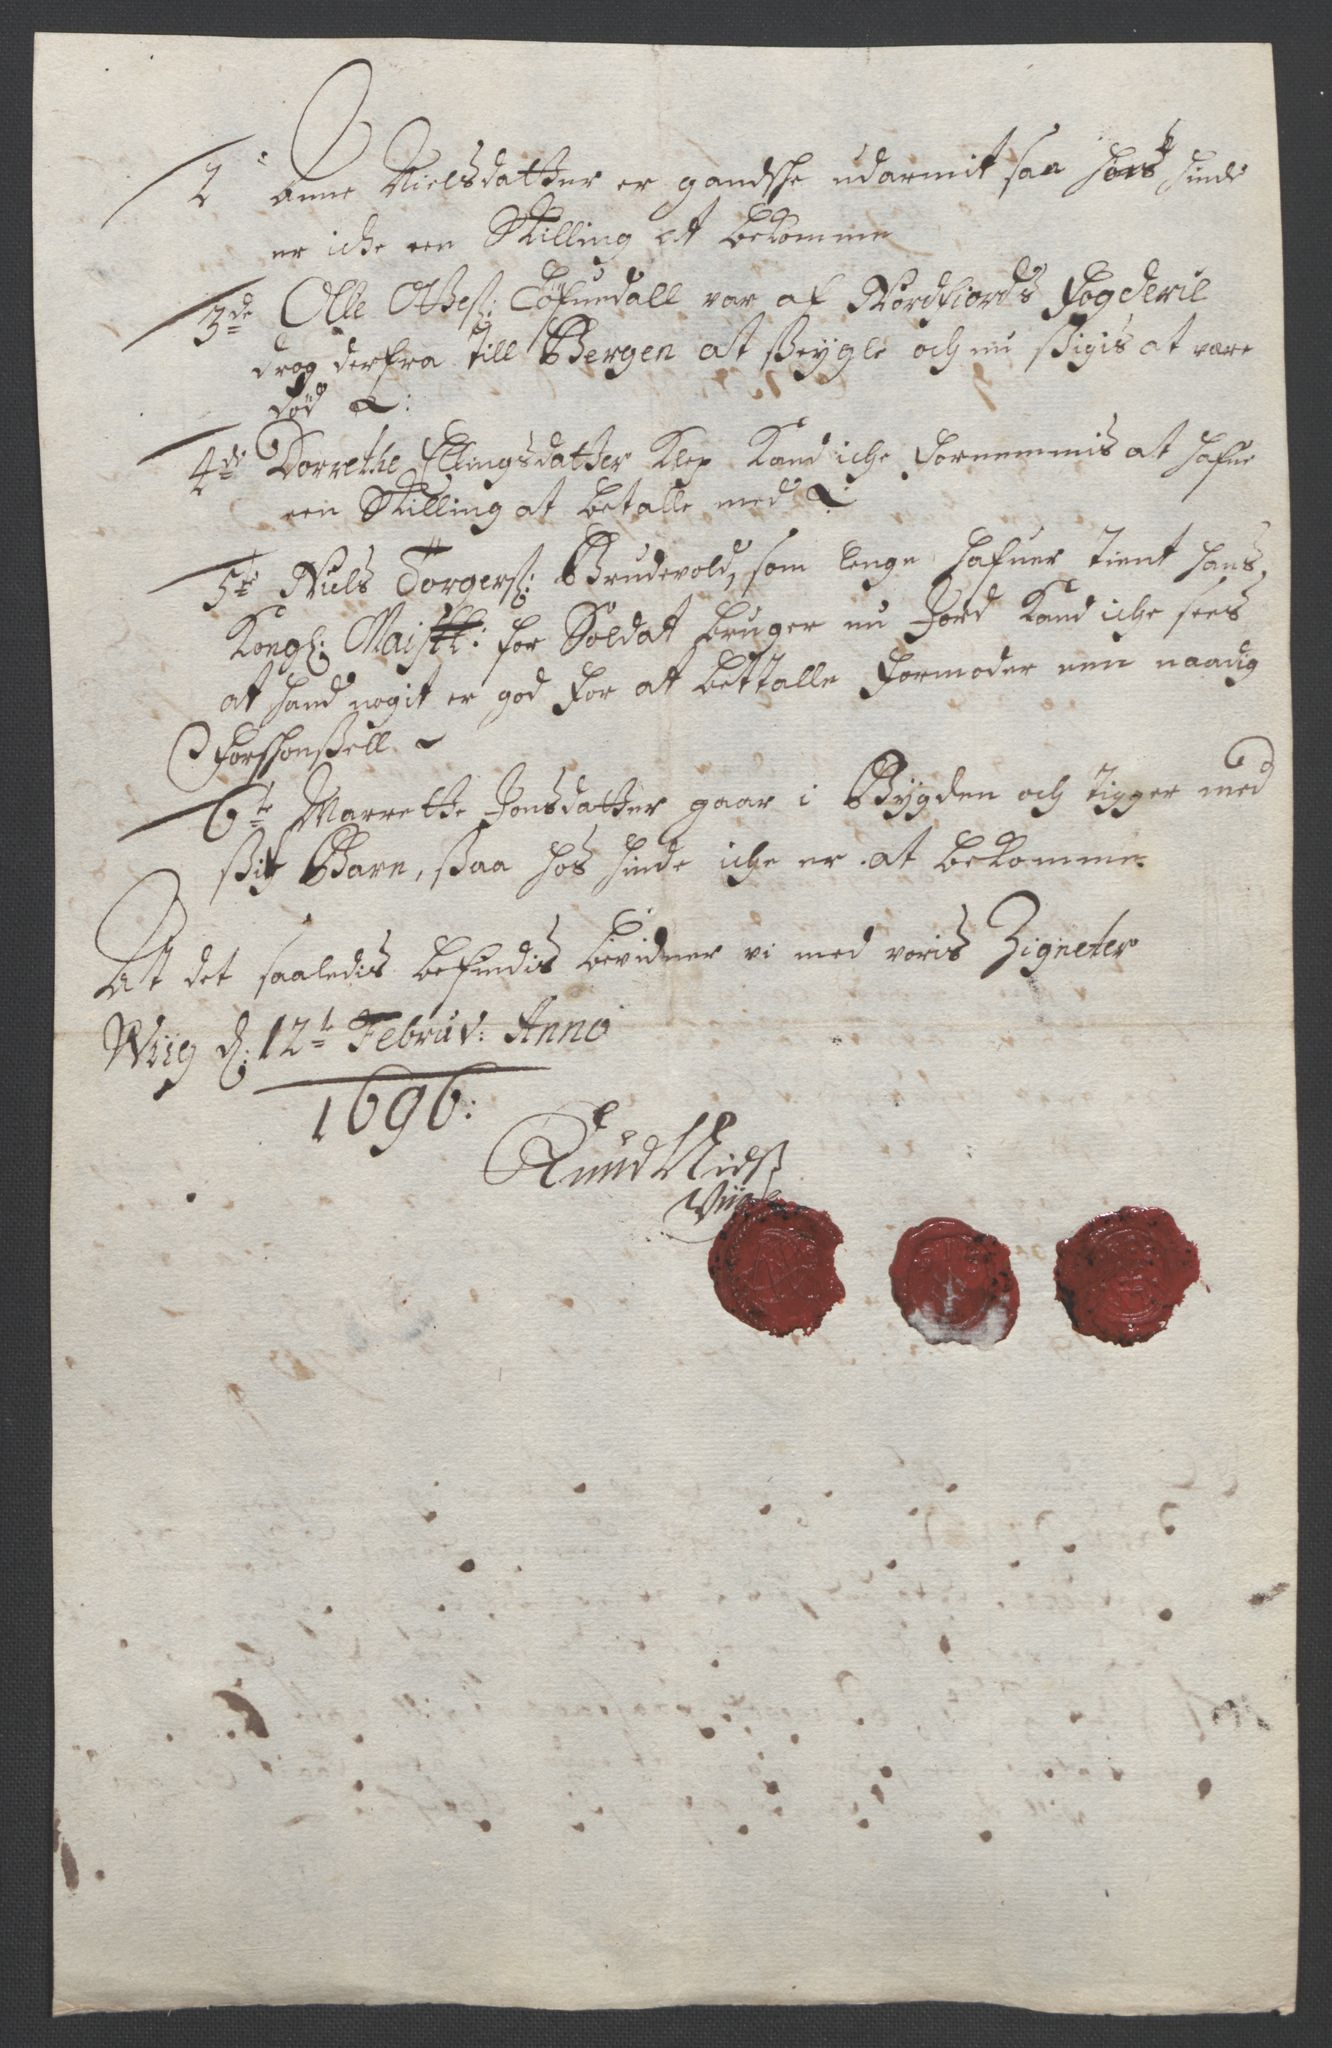 2 Anne Nielsdatter er gandsche udarmit saa hoes hinde
er iche een Skilling at bekomme
3de Olle Olles: Løfuedall var af Nordfiords Fogderie
drog derfra till Bergen at Seygle och nu Sigis at være
død
4de Dorrethe Ellingsdatter Klep Kand iche fornemmis at hafue
een Skilling at betalle med
5te Niels Torgers: Brudevold, som lenge hafuer tient hans
Kongl: Maistt: for Soldat bruger nu Jord Kand iche sees
at hand nogit er god for at bettalle formoder een naadig
forschonsell
6te Marrette Jonsdatter gaar i Bygden och tigger med
sit Barn, saa hos hinde iche er at bekomme
At det saaledis befindis bevidner vi med voris Zigneter
Wiig d: 12te Februv: Anno
1696:
Knud Nielss
Viig